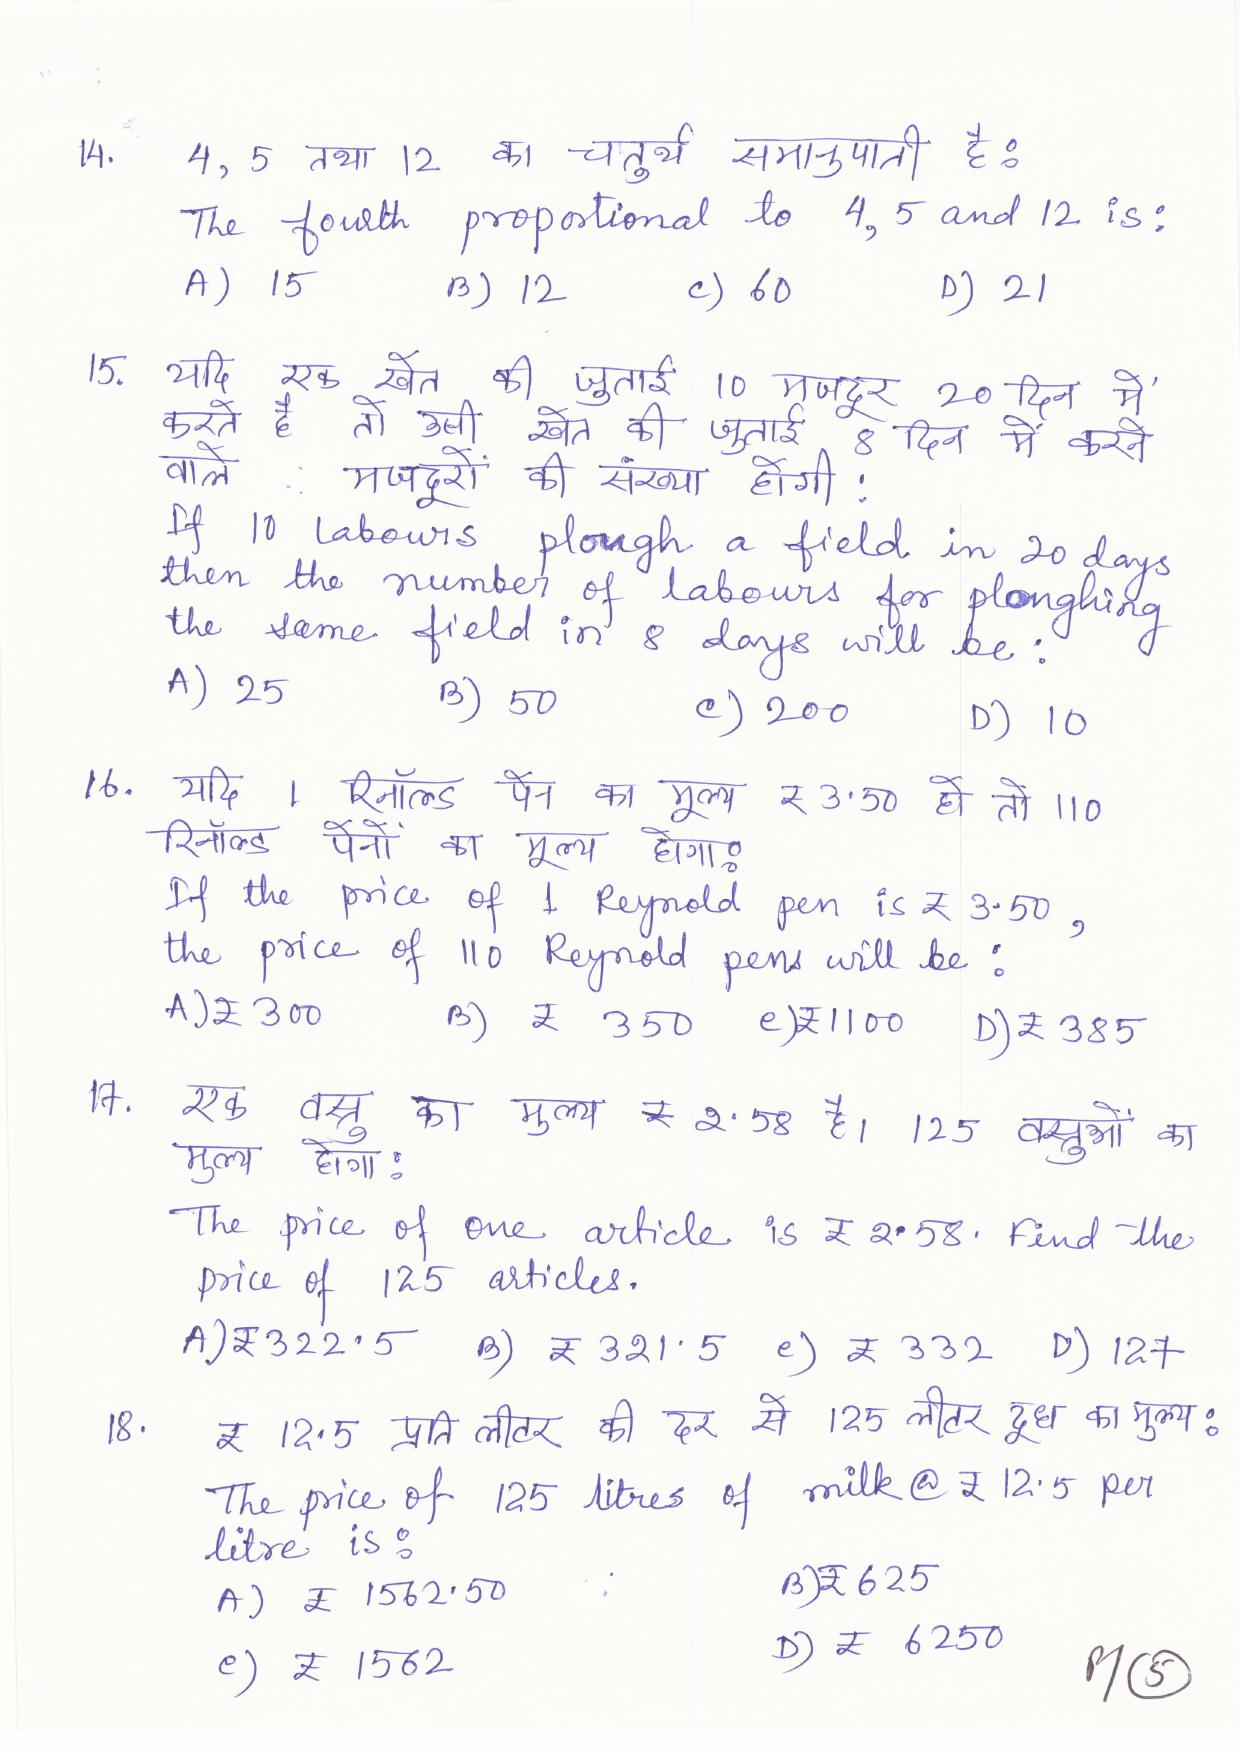 14. 4, 5 तथा 12 का चतुर्थ समानुपाती है:
The fourth proportional to 4, 5 and 12 is:
A) 15 B) 12 C) 60 D) 21
15. यदि एक खेत की जुताई 10 मजदूर 20 दिन में
करते है तो उसी खेत की जुताई 8 दिन में करने
वाले मजदूरों की संख्या होगी:
If 10 labours plough a field in 20 days
then the number of labours for ploughing
the same field in 8 days will be:
A) 25 B) 50 C) 200 D) 10
16. यदि 1 रिनॉल्ड पेन का मूल्य ₹ 3.50 हो तो 110
रिनॉल्ड पेनों का मूल्य होगा:
If the price of 1 Reynold pen is ₹ 3.50,
the price of 110 Reynold pens will be:
A) ₹ 300 B) ₹ 350 C) ₹ 1100 D) ₹ 385
17. एक वस्तु का मुल्य ₹ 2.58 है। 125 वस्तुओं का
मुल्य होगा:
The price of one article is ₹ 2.58. Find the
price of 125 articles.
A) ₹ 322.5 B) ₹ 321.5 C) ₹ 332 D) 127
18. ₹ 12.5 प्रति लीटर की दर से 125 लीटर दूध का मुल्य:
The price of 125 litres of milk @ ₹ 12.5 per
litre is:
A) ₹ 1562.50 B) ₹ 625
C) ₹ 1562 D) ₹ 6250
5